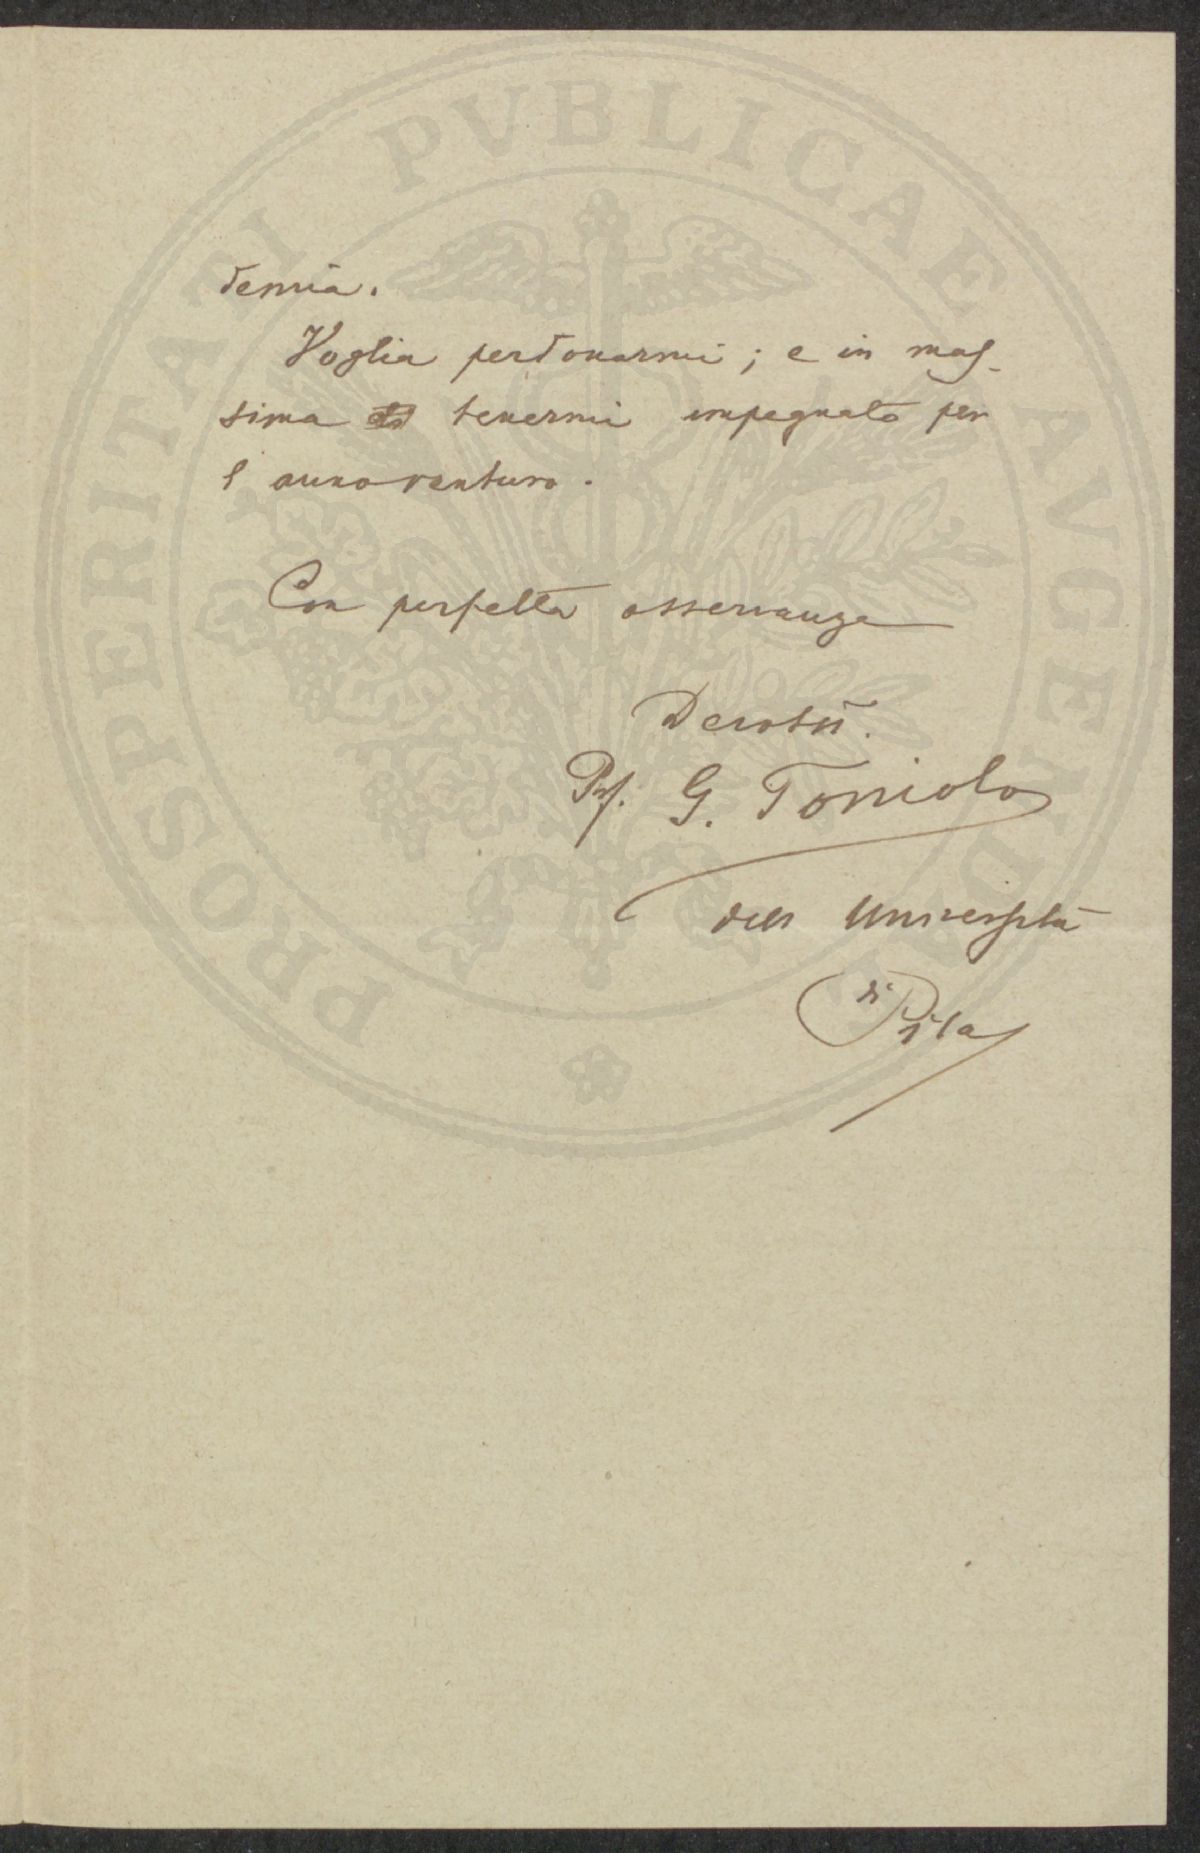 demia.
Voglia perdonarmi; e in mas-
sima tenermi impegnato per
l'anno venturo.
Con perfetta osservanza
Devotss.
Prof. G. Toniolo
dell Università
di Pisa
PROSPERITATI PVBLICAE AVGENDAE